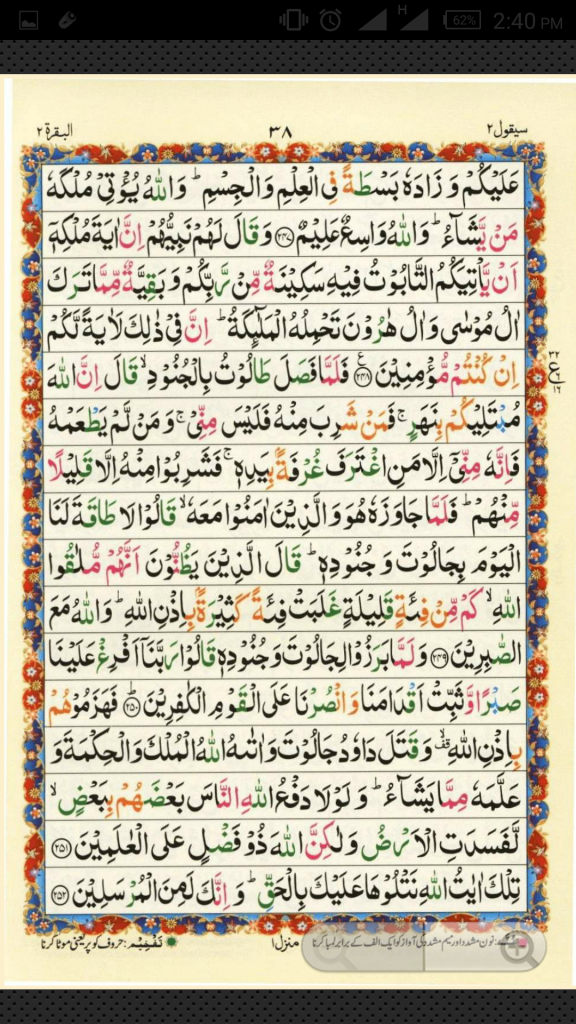 H 62% 2:40 PM
سیقول ۲ ۳۸ البقرة ۲
عَلَيْكُمْ وَ زَادَهٗ بَسْطَةً فِی الْعِلْمِ وَالْجِسْمِ ؕ وَاللّٰهُ يُؤْتِیْ مُلْكَهٗ
مَنْ يَّشَآءُ ؕ وَاللّٰهُ وَاسِعٌ عَلِيْمٌ ﴿۲۴۷﴾ وَقَالَ لَهُمْ نَبِيُّهُمْ اِنَّ اٰيَةَ مُلْكِهٖۤ
اَنْ يَّاْتِيَكُمُ التَّابُوْتُ فِيْهِ سَكِيْنَةٌ مِّنْ رَّبِّكُمْ وَ بَقِيَّةٌ مِّمَّا تَرَكَ
اٰلُ مُوْسٰی وَاٰلُ هٰرُوْنَ تَحْمِلُهُ الْمَلٰٓئِكَةُ ؕ اِنَّ فِیْ ذٰلِكَ لَاٰيَةً لَّكُمْ
اِنْ كُنْتُمْ مُّؤْمِنِيْنَ ﴿۲۴۸﴾ ع فَلَمَّا فَصَلَ طَالُوْتُ بِالْجُنُوْدِ ۙ قَالَ اِنَّ اللّٰهَ
۳۲ ع ۱۶
مُبْتَلِيْكُمْ بِنَهَرٍ ۚ فَمَنْ شَرِبَ مِنْهُ فَلَيْسَ مِنِّیْ ۚ وَ مَنْ لَّمْ يَطْعَمْهُ
فَاِنَّهٗ مِنِّیْۤ اِلَّا مَنِ اغْتَرَفَ غُرْفَةًۢ بِيَدِهٖ ۚ فَشَرِبُوْا مِنْهُ اِلَّا قَلِيْلًا
مِّنْهُمْ ؕ فَلَمَّا جَاوَزَهٗ هُوَ وَالَّذِيْنَ اٰمَنُوْا مَعَهٗ ۙ قَالُوْا لَا طَاقَةَ لَنَا
الْيَوْمَ بِجَالُوْتَ وَ جُنُوْدِهٖ ؕ قَالَ الَّذِيْنَ يَظُنُّوْنَ اَنَّهُمْ مُّلٰقُوا
اللّٰهِ ۙ كَمْ مِّنْ فِئَةٍ قَلِيْلَةٍ غَلَبَتْ فِئَةً كَثِيْرَةًۢ بِاِذْنِ اللّٰهِ ؕ وَاللّٰهُ مَعَ
الصّٰبِرِيْنَ ﴿۲۴۹﴾ وَلَمَّا بَرَزُوْا لِجَالُوْتَ وَجُنُوْدِهٖ قَالُوْا رَبَّنَاۤ اَفْرِغْ عَلَيْنَا
صَبْرًا وَّ ثَبِّتْ اَقْدَامَنَا وَانْصُرْنَا عَلَی الْقَوْمِ الْكٰفِرِيْنَ ﴿۲۵۰﴾ؕ فَهَزَمُوْهُمْ
بِاِذْنِ اللّٰهِ ۙ قف وَ قَتَلَ دَاوٗدُ جَالُوْتَ وَ اٰتٰىهُ اللّٰهُ الْمُلْكَ وَ الْحِكْمَةَ وَ
عَلَّمَهٗ مِمَّا يَشَآءُ ؕ وَ لَوْ لَا دَفْعُ اللّٰهِ النَّاسَ بَعْضَهُمْ بِبَعْضٍ ۙ
لَّفَسَدَتِ الْاَرْضُ وَ لٰكِنَّ اللّٰهَ ذُوْ فَضْلٍ عَلَی الْعٰلَمِيْنَ ﴿۲۵۱﴾
تِلْكَ اٰيٰتُ اللّٰهِ نَتْلُوْهَا عَلَيْكَ بِالْحَقِّ ؕ وَ اِنَّكَ لَمِنَ الْمُرْسَلِيْنَ ﴿۲۵۲﴾
نون مشدد اور میم مشدد کی آواز کو ایک الف کے برابر لمبا کرنا منزل ۱ تَفْخِيْم: حروف کو پُر یعنی موٹا کرنا